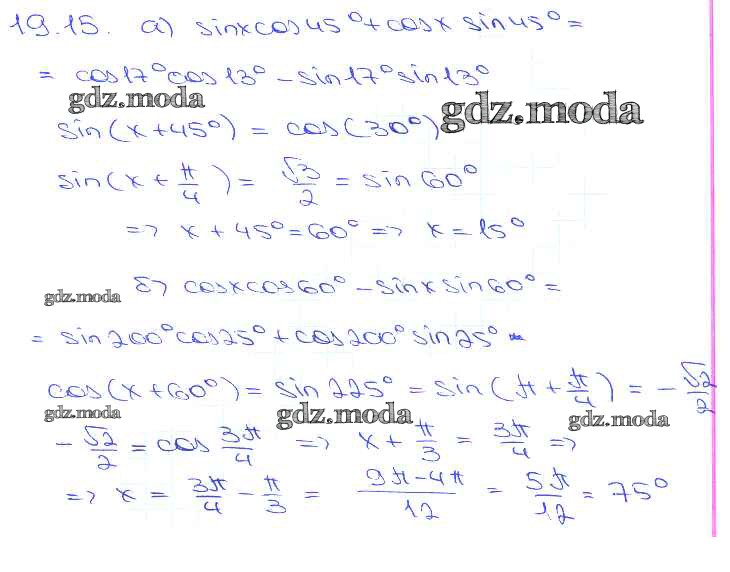 19.15. а) sinxcos45°+cosx sin45°=
= cos17°cos13°-sin17°sin13°
gdz.moda
gdz.moda
sin(x+45°) = cos(30°)
sin(x+π/4) = √3/2 = sin60°
=> x+45°=60° => x=15°
gdz.moda
б) cosxcos60°-sinxsin60°=
= sin200°cos25°+cos200°sin25°
cos(x+60°) = sin225° = sin(π+π/4) = -√2/2
gdz.moda
gdz.moda
gdz.moda
-√2/2 = cos 3π/4 => x+π/3 = 3π/4 =>
=> x = 3π/4 - π/3 = 9π-4π/12 = 5π/12 = 75°